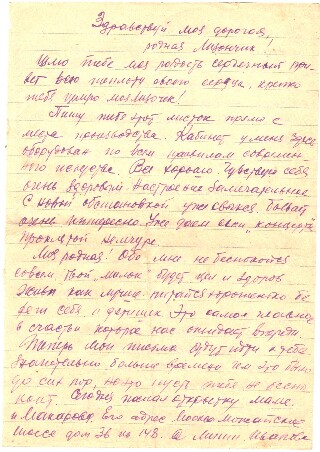 Здравствуй моя дорогая,
родная Лизончик!
Шлю тебе моя радость сердечный при
вет всю теплоту своего сердца, крепко
тебя целую моя Лизочек!
Пишу тебе этот листок прямо с
места производства. Кабинет у меня здесь
оборудован по всем правилам современ
ного искусства. Все хорошо. Чувствую себя
очень здоровой. Настроение замечательное
С новой обстановкой уже свыкся. Бывает
очень интересно. Уже даем свои "концерты"
проклятой немчуре.
Моя родная! Обо мне не беспокойся
совсем твой "милый" будет цел и здоров.
Живи как лучше питайся хорошенько бе
реги себя и это самое главное
в счастье которое нас ожидает впереди.
Теперь мои письма будут идти к тебе
значительно больше времени чем это было
до сих пор, но это пусть тебя не беспо
коит. Сегодня послал открытку маме
и Макарову. Его адрес Москва Можайское
шоссе дом 36 кв 148.